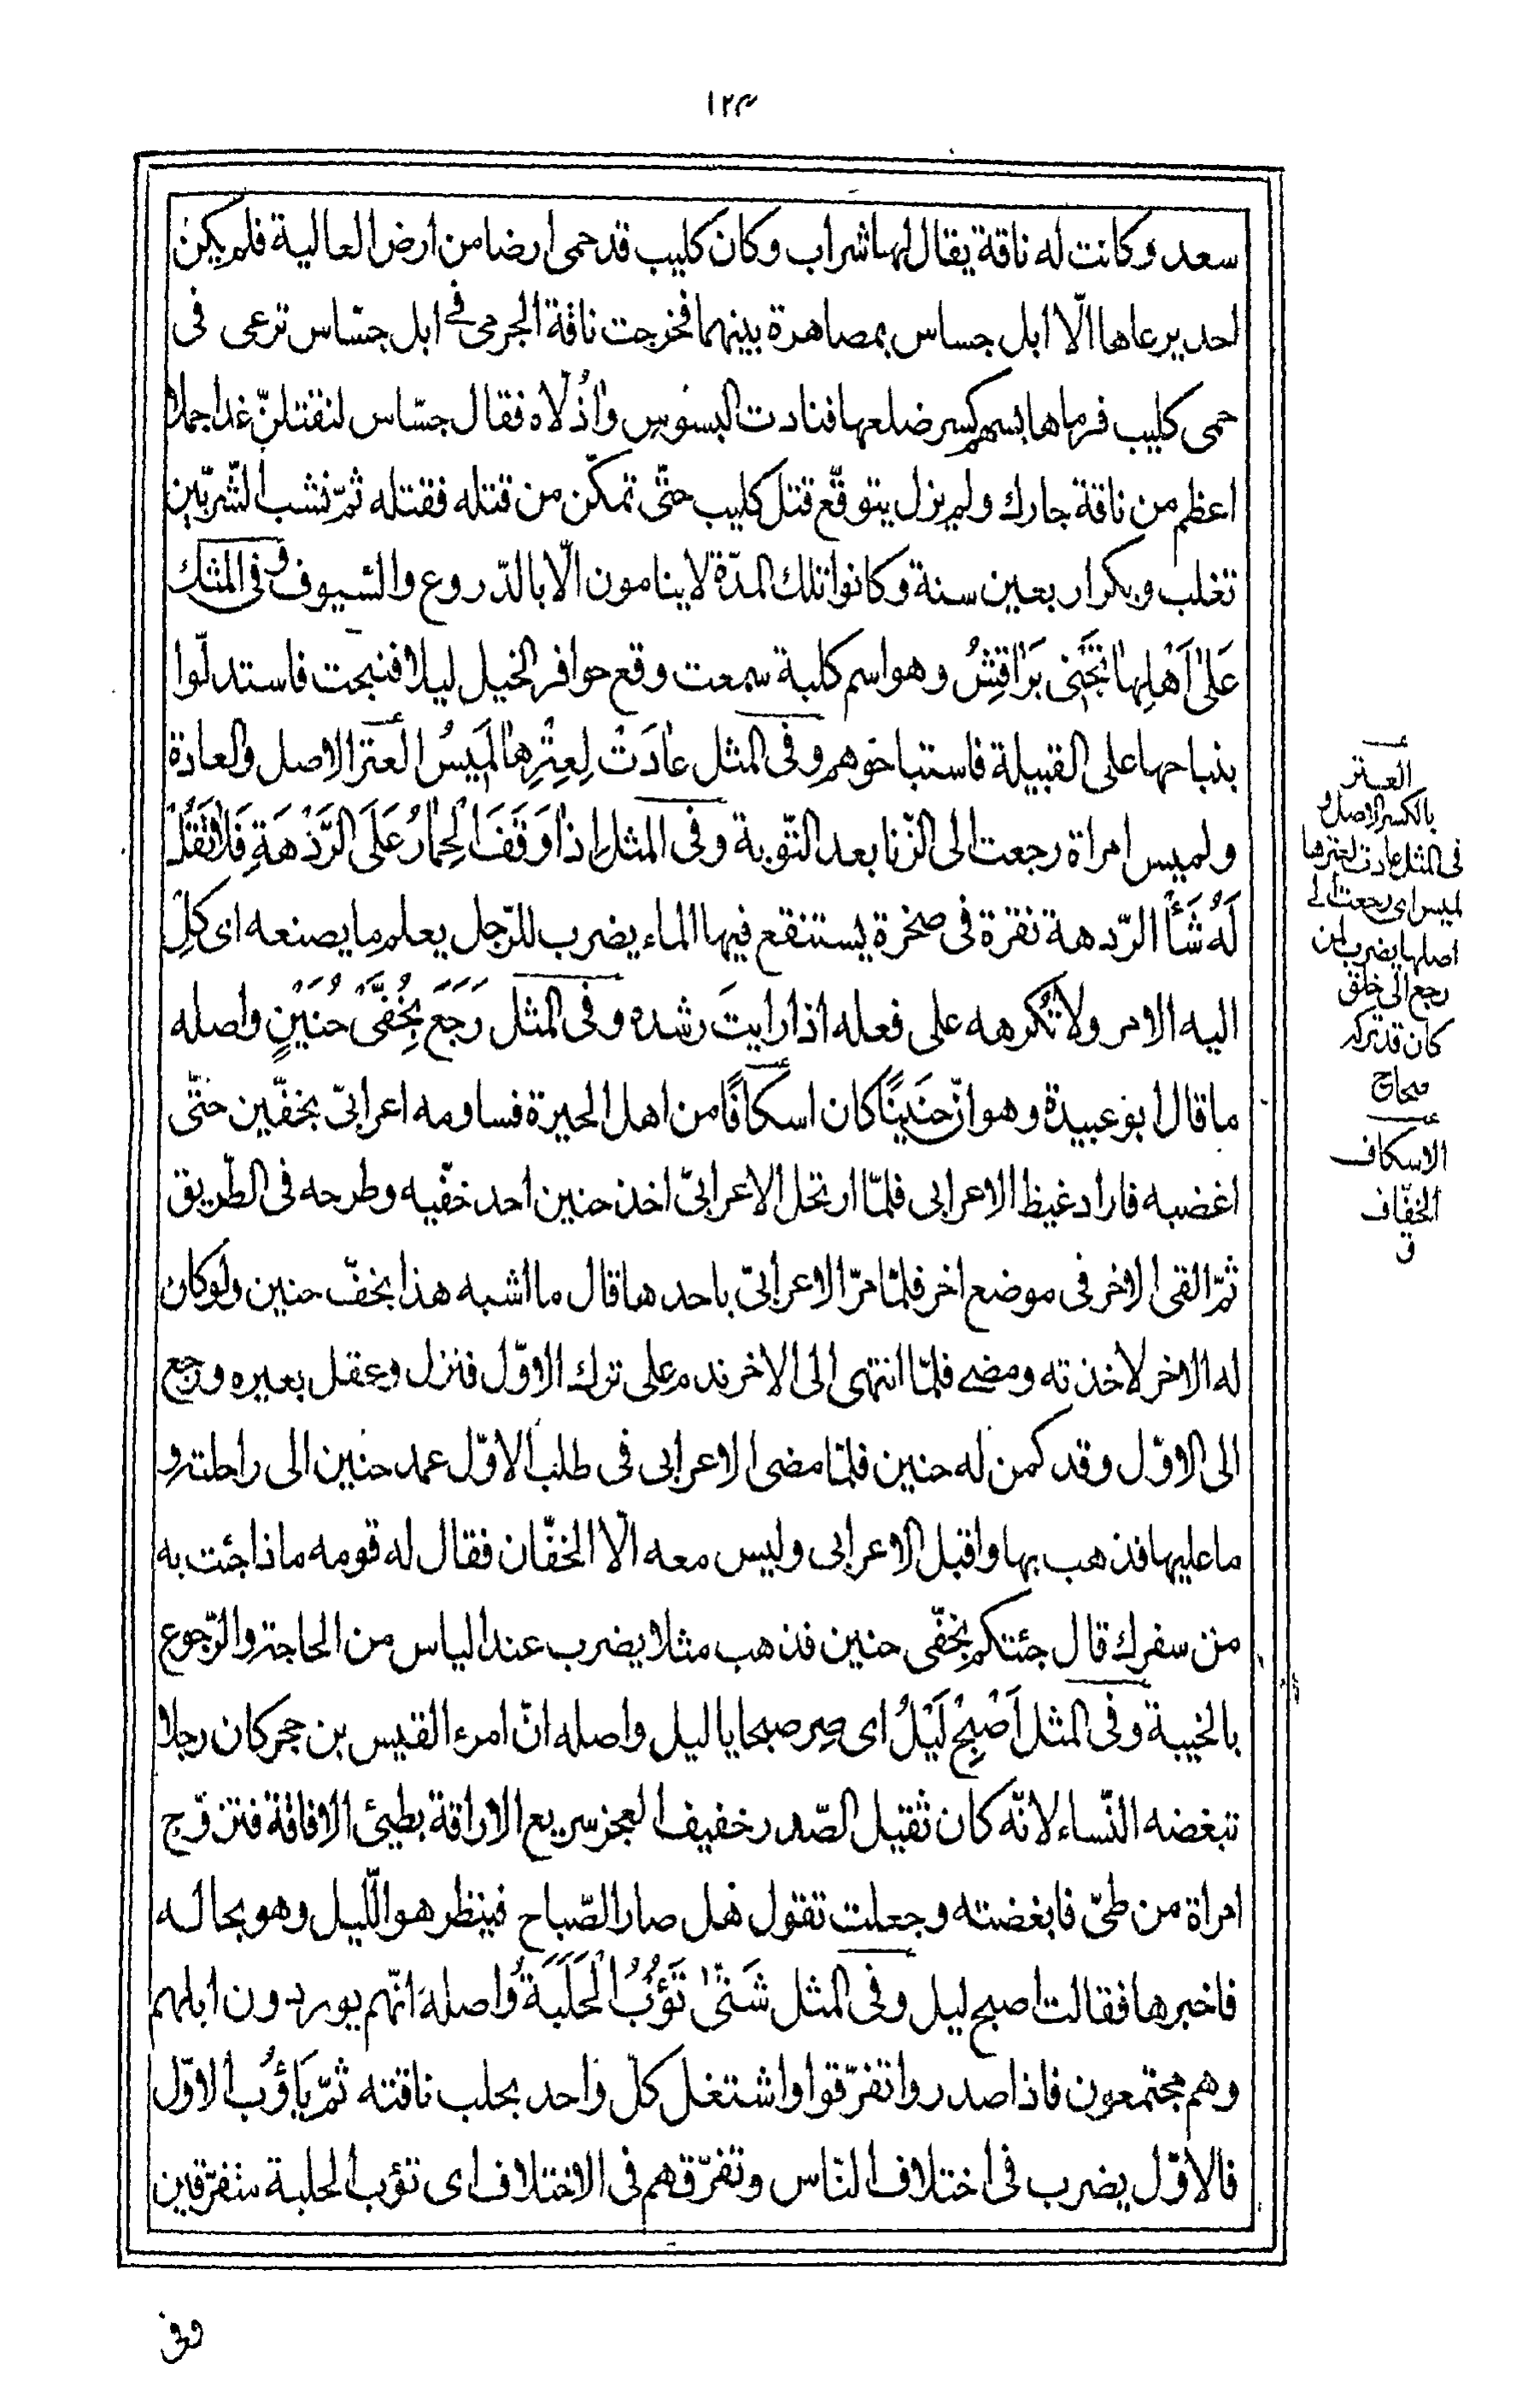 ١٢٣
سعد وكانت له ناقة يقال لها شراب وكان كليب قد حمى ارضا من ارض العالية فلم يكن
احد يرعاها الّا ابل جساس بمصاهرة بينهما فخرجت ناقة الجرمى فى ابل جسّاس ترعى فى
حمى كليب فرماها بسهم كسر ضلعها فنادت البسوس واذُلّاه فقال جسّاس لنقتلنّ غدا جملا
اعظم من ناقة جارك ولم يزل يتوقّع قتل كليب حتّى تمكّن من قتله فقتله ثمّ نشب الشّر بين
تغلب وبكر اربعين سنة وكانوا تلك المدّة لا ينامون الّا بالدّروع والسّيوف وفى المثل
عَلىٰ اَهْلِهاٰ تَجْنى بَرٰاقِشُ وهو اسم كلبة سمعت وقع حوافر الخيل ليلا فنبحت فاستدلّوا
بنباحها على القبيلة فاستباحوهم وفى المثل عاٰدَتْ لِعِتْرِهاٰ لَمَيسُ العتر الاصل والعادة
ولميس امراة رجعت الى الزّنا بعد التّوبة وفى المثل اِذاٰ وَقَفَ الْحِمٰارُ عَلَى الرَّدْهَةِ فَلاٰ تَقُلْ
لَهُ شَأْ الرّدهة نقرة فى صخرة يستنقع فيها الماء يضرب للرّجل يعلم ما يصنعه اى كِلْ
اليه الامر ولا تُكرهه على فعله اذا رايتَ رشده وفى المثل رَجَعَ بِخُفَّىْ حُنَيْنٍ واصله
ما قال ابو عبيدة وهو انّ حنَينًا كان اسكافًا من اهل الحيرة فساومه اعرابىّ بخفّين حتّى
اغضبه فاراد غيظ الاعرابى فلمّا ارتحل الاعرابىّ اخذ حنين احد خفّيه وطرحه فى الطّريق
ثمّ القى الاخر فى موضع اخر فلمّا مرّ الاعرابىّ باحدها قال ما اشبه هذا بخفّ حنين ولو كان
له الاخر لاخذته ومضى فلمّا انتهى الى الاخر ندم على ترك الاوّل فنزل وعقل بعيره ورجع
الى الاوّل وقد كمن له حنين فلمّا مضى الاعرابى فى طلب الاوّل عمد حنين الى راحلته و
ما عليها فذهب بها واقبل الاعرابى وليس معه الّا الخفّان فقال له قومه ماذا جئت به
من سفرك قال جئتكم بخفّى حنين فذهب مثلا يضرب عند الياس من الحاجة والرّجوع
بالخيبة وفى المثل اَصْبِحْ لَيْلُ اى صِر صبحا يا ليل واصله انّ امرء القيس بن حجر كان رجلا
تبغضه النّساء لانّه كان ثقيل الصّدر خفيف العجز سريع الاراقة بطيئ الافاقة فتزوّج
امراة من طىّ فابغضته وجعلت تقول هل صار الصّباح فينظر هو اللّيل وهو بحاله
فاخبرها فقالت اصبح ليل وفى المثل شَتّىٰ تَؤُبُ الْحَلَبَةُ واصله انّهم يوردون ابلهم
وهم مجتمعون فاذا صدروا تفرّقوا واشتغل كلّ واحد بحلب ناقته ثمّ يَاؤُب الاوّل
فالاوّل يضرب فى اختلاف النّاس وتفرّقهم فى الاختلاف اى تؤب الحلبة متفرّقين
وفى
العتر
بالكسر الاصل و
فى المثل عادت لعترها
لميس اى رجعت الى
اصلها يضرب لمن
رجع الى خلق
كان قد تركه
صحاح
الاسكاف
الخفّاف
ق